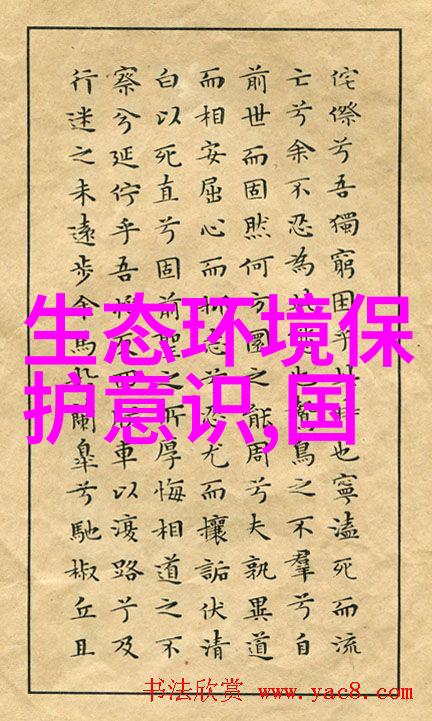 侘傺兮吾獨窮困乎此時也寧溘死而流
亡兮余不忍為也鷙鳥之不羣兮自
前世而固然何方圜之能周兮夫孰異道
而相安屈心而抑志兮忍尤而攘詬伏清
白以死直兮固前聖之所厚悔相道之不
察兮延佇乎吾將回車以復路兮及
行迷之未遠步余馬於蘭皐兮馳椒丘且
生态环境保
护意识,国
书法欣赏 www.yac8.com